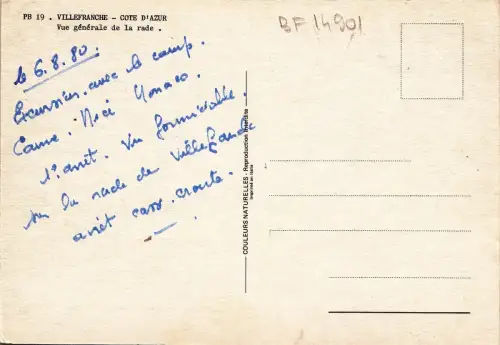 PB 19 . VILLEFRANCHE - COTE D'AZUR
Vue générale de la rade .
BF 14901
le 6.8.80.
Excursion avec le camp.
Canne. Nice Monaco.
1° arrêt. Vu formidable.
sur la rade de Villefranche
arrêt casse.croute.
COULEURS NATURELLES - Reproduction interdite
Imprimé en Italie